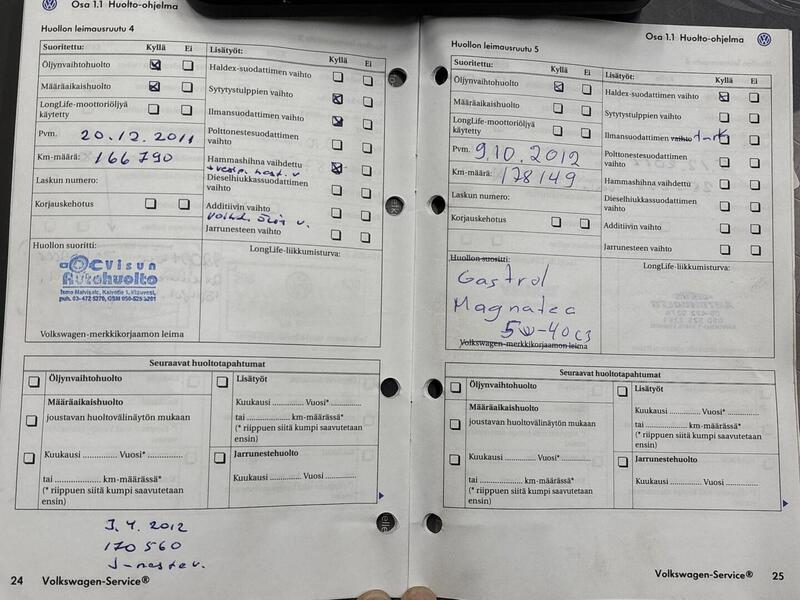 Osa 1.1 Huolto-ohjelma
Huollon leimausruutu 4
Suoritettu: Kyllä Ei
Öljynvaihtohuolto
Määräaikaishuolto
LongLife-moottoriöljyä
käytetty
Pvm. 20.12.2011
Km-määrä: 166 790
Laskun numero:
Korjauskehotus
Lisätyöt: Kyllä Ei
Haldex-suodattimen vaihto
Sytytystulppien vaihto
Ilmansuodattimen vaihto
Polttonestesuodattimen
vaihto
Hammashihna vaihdettu
Dieselhiukkassuodattimen
vaihto
Additiivin vaihto
Jarrunesteen vaihto
Huollon suoritti:
Visun
Autohuolto
Volkswagen-merkkikorjaamon leima
LongLife-liikkumisturva:
Seuraavat huoltotapahtumat
Öljynvaihtohuolto
Määräaikaishuolto
joustavan huoltovälinäytön mukaan
Kuukausi .............. Vuosi* ..............
tai .................... km-määrässä*
(* riippuen siitä kumpi saavutetaan
ensin)
Lisätyöt
Kuukausi .............. Vuosi* ..............
tai .................... km-määrässä*
(* riippuen siitä kumpi saavutetaan
ensin)
Jarrunestehuolto
Kuukausi .............. Vuosi ..............
3.4.2012
170 560
24 Volkswagen-Service®
Osa 1.1 Huolto-ohjelma
Huollon leimausruutu 5
Suoritettu: Kyllä Ei
Öljynvaihtohuolto
Määräaikaishuolto
LongLife-moottoriöljyä
käytetty
Pvm. 9.10.2012
Km-määrä: 178149
Laskun numero:
Korjauskehotus
Lisätyöt: Kyllä Ei
Haldex-suodattimen vaihto
Sytytystulppien vaihto
Ilmansuodattimen vaihto
Polttonestesuodattimen
vaihto
Hammashihna vaihdettu
Dieselhiukkassuodattimen
vaihto
Additiivin vaihto
Jarrunesteen vaihto
Huollon suoritti:
Castrol
Magnatec
5W-40 C3
Volkswagen-merkkikorjaamon leima
LongLife-liikkumisturva:
Seuraavat huoltotapahtumat
Öljynvaihtohuolto
Määräaikaishuolto
joustavan huoltovälinäytön mukaan
Kuukausi .............. Vuosi* ..............
tai .................... km-määrässä*
(* riippuen siitä kumpi saavutetaan
ensin)
Lisätyöt
Kuukausi .............. Vuosi* ..............
tai .................... km-määrässä*
(* riippuen siitä kumpi saavutetaan
ensin)
Jarrunestehuolto
Kuukausi .............. Vuosi ..............
Volkswagen-Service® 25